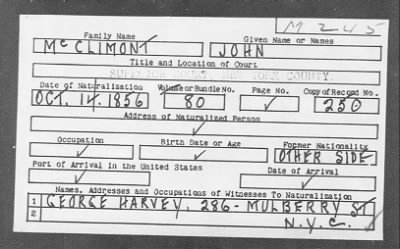 M 245
Family Name Given Name or Names
Mc CLIMONT JOHN
Title and Location of Court
SUPERIOR COURT, NEW YORK COUNTY.
Date of Naturalization Volume or Bundle No. Page No. Copy of Record No.
OCT. 14. 1856 80 ✓ 250
Address of Naturalized Person
✓
Occupation Birth Date or Age Former Nationality
✓ ✓ OTHER SIDE
Port of Arrival in the United States Date of Arrival
✓ ✓
Names, Addresses and Occupations of Witnesses To Naturalization
1 GEORGE HARVEY, 286 - MULBERRY ST
2 N.Y.C. ✓